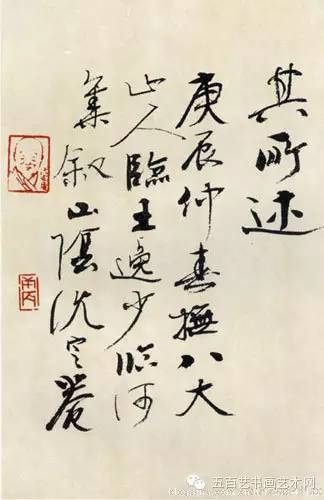 其所述
庚辰仲春撫八大
山人臨王逸少臨河
集叙山陰沈定菴
五百艺书画艺术网